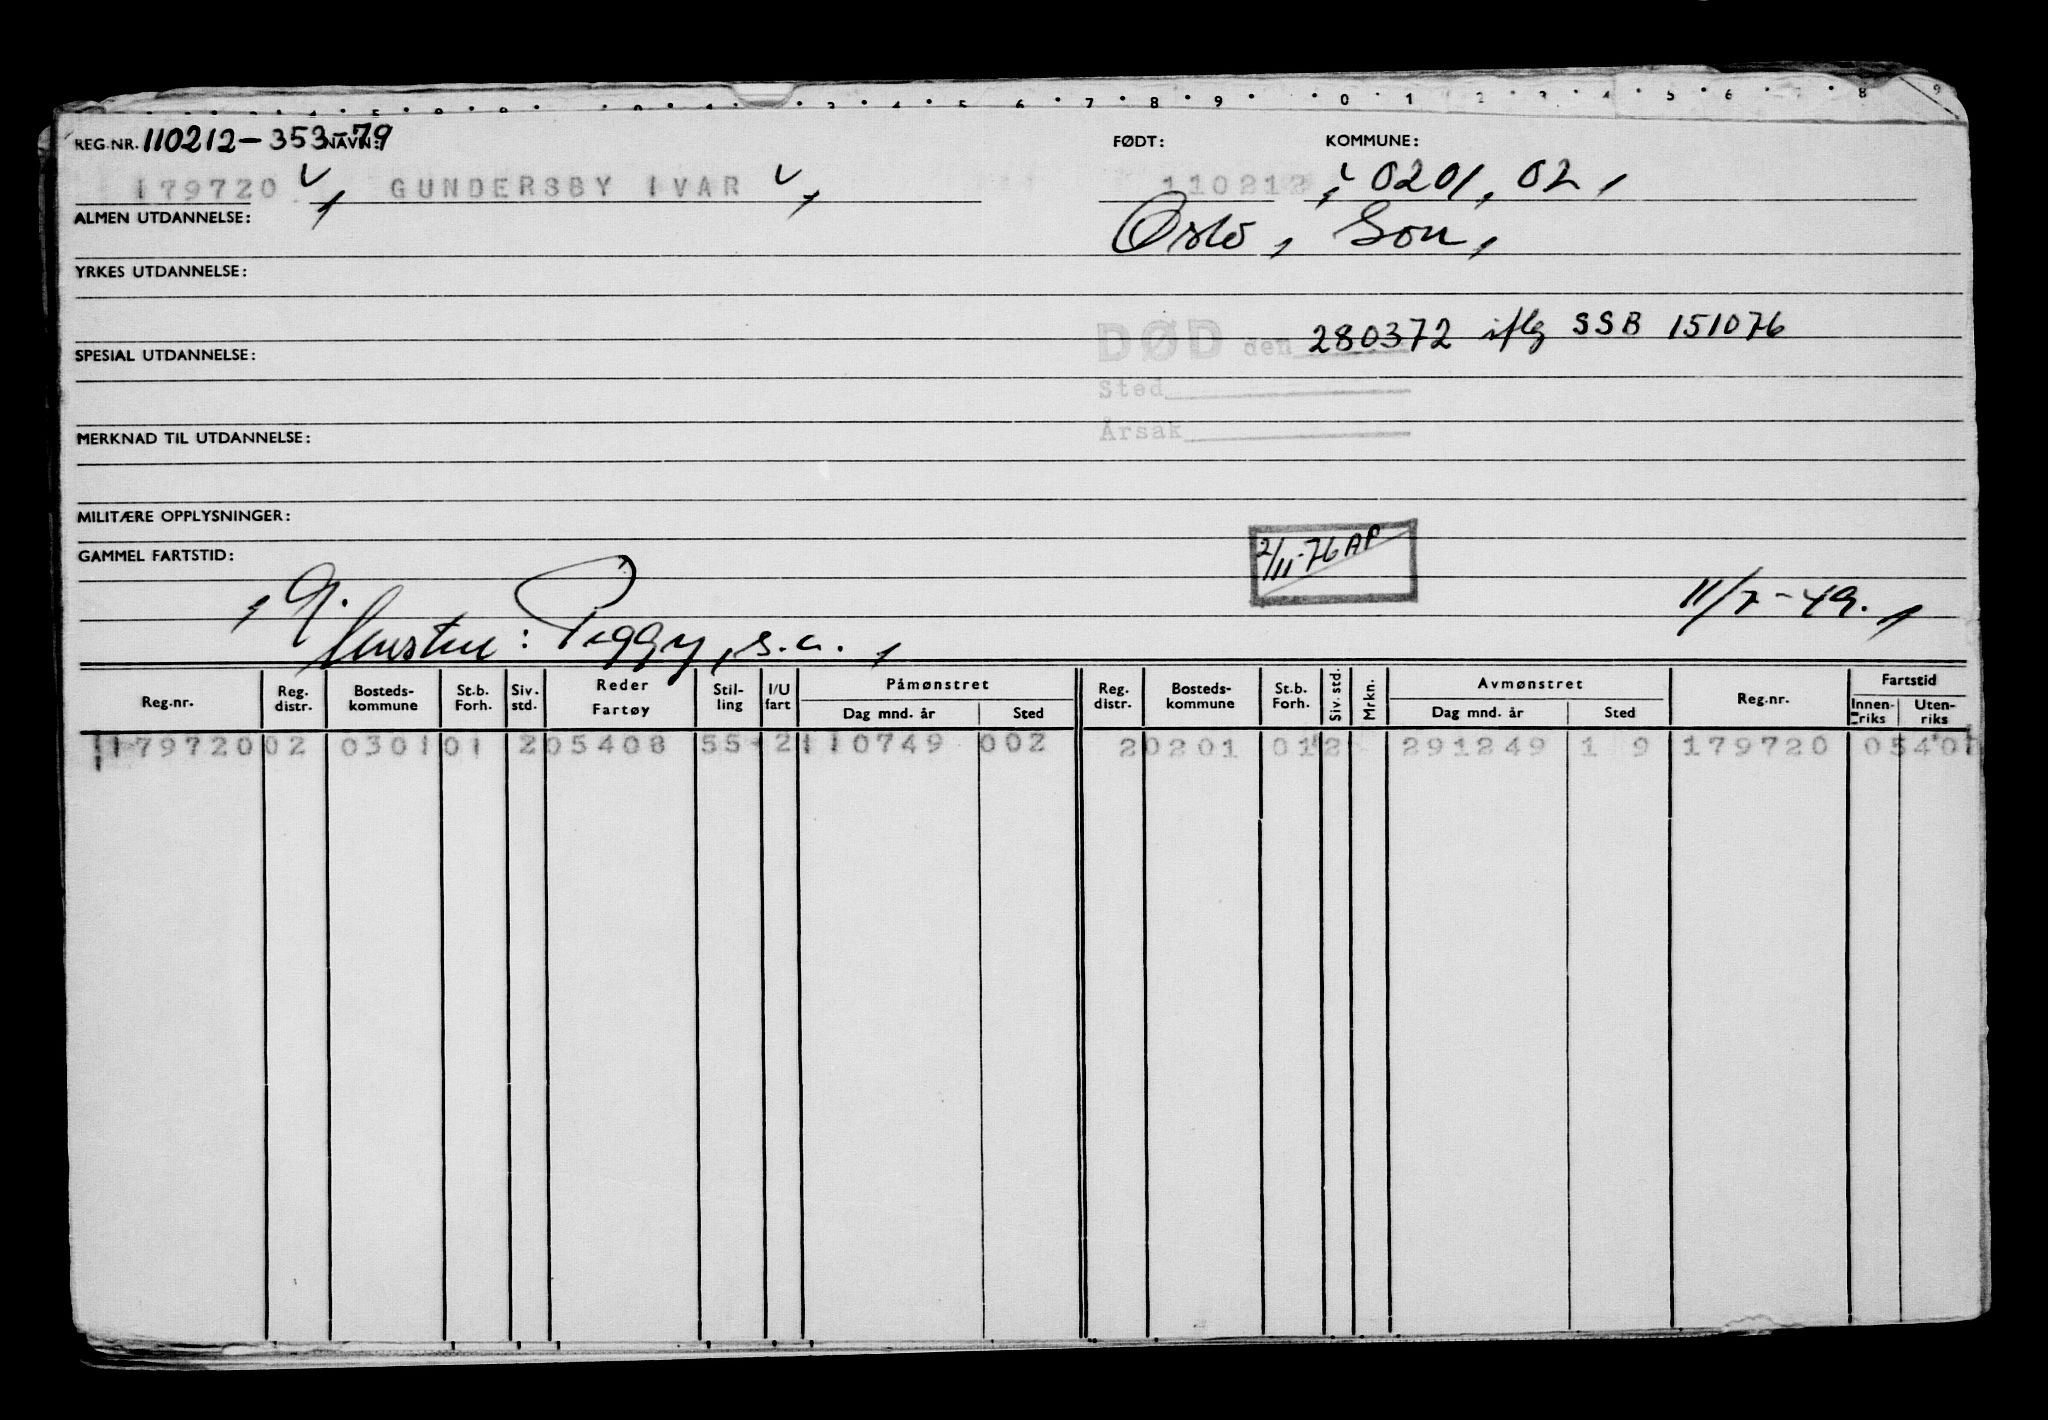 REG.NR. 110212-353-79 NAVN: FØDT: KOMMUNE:
179720 v, GUNDERSBY IVAR v, 110212 , 0201, 02,
ALMEN UTDANNELSE: Oslo, Son,
YRKES UTDANNELSE:
DØD den 280372 iflg SSB 151076
SPESIAL UTDANNELSE:
Sted
Årsak
MERKNAD TIL UTDANNELSE:
MILITÆRE OPPLYSNINGER:
GAMMEL FARTSTID:
2/11-76 AP
11/7-49.,
: Peggy, s.a.,
Reg.nr. Reg. distr. Bosteds-kommune St.b. Forh. Siv. std. Reder Fartøy Stil-ling I/U fart Påmønstret Dag mnd. år Sted Reg. distr. Bosteds-kommune St.b. Forh. Siv. std. Mrkn. Avmønstret Dag mnd. år Sted Reg.nr. Fartstid Innen-riks Uten-riks
179720 02 0301 01 2 05408 55 2 110749 002 2 0201 01 2 291249 1 9 179720 0540